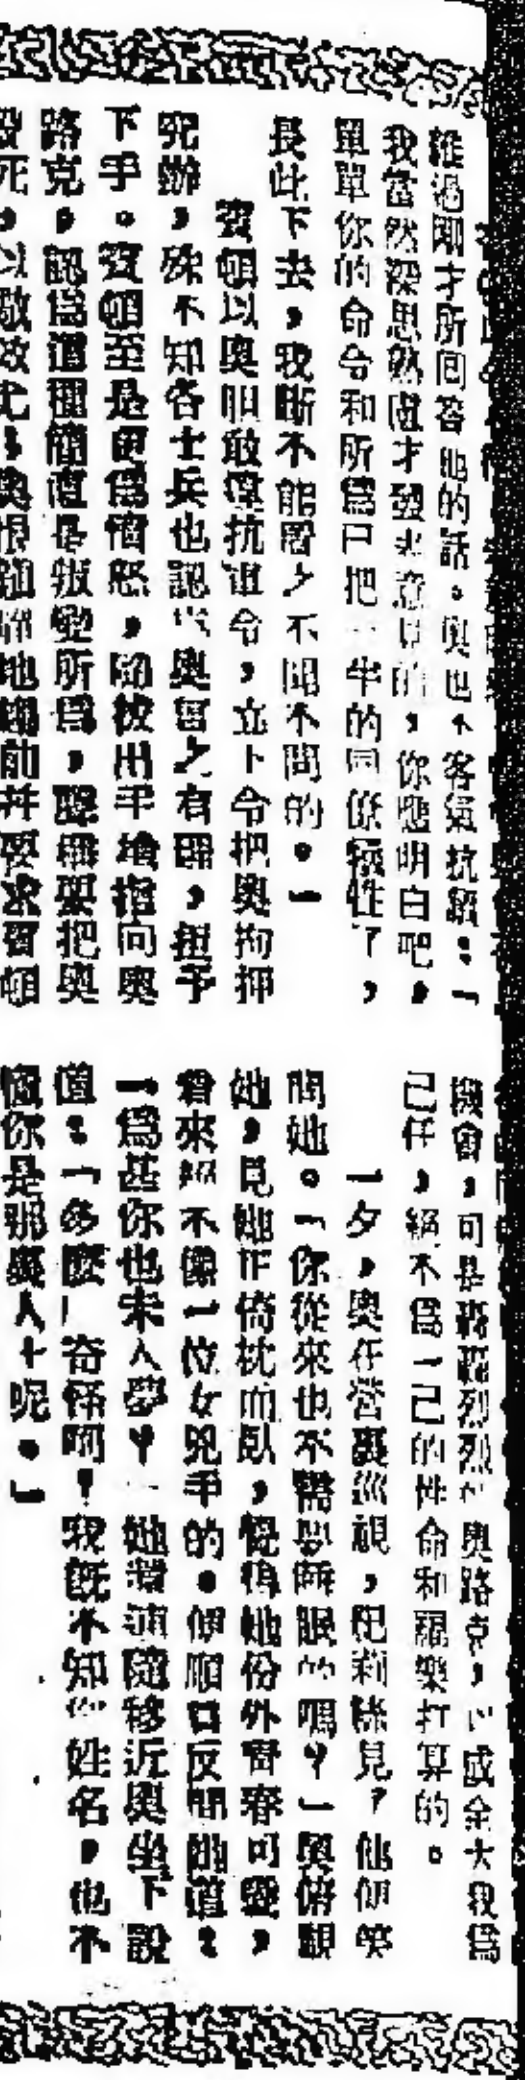 雖過剛才所回答他的話。奧也不客氣抗辯：「
我當然深思熟慮才發表意見的，你應明白吧，
單單你的命令和所為已把一半的同僚犧牲了，
長此下去，我斷不能置之不聞不問的。」
賓頓以奧胆敢違抗軍令，立下令把奧拘押
究辦，殊不知各士兵也認為奧言之有理，拒予
下手。賓頓至是更為憤怒，即拔出手槍指向奧
路克，認為這種簡直是叛變所為，聲稱要把奧
殺死，以儆效尤，奧
地趨前幷要求賓頓
機會，可是轟轟烈烈的奧路克，以成全大我為
己任，絕不為一己的性命和福樂打算的。
一夕，奧在營裏巡視，妃莉絲見了他便笑
問她。「你從來也不需要睡眠的嗎？」奧俯視
她，見她正倚枕而臥，覺得她份外青春可愛，
看來絕不像一位女兇手的。便順口反問她道：
「為甚你也未入夢？」她
隨移近奧坐下說
道：「多麼！奇怪啊！我既不知你姓名，也不
你是那裏人士呢。」